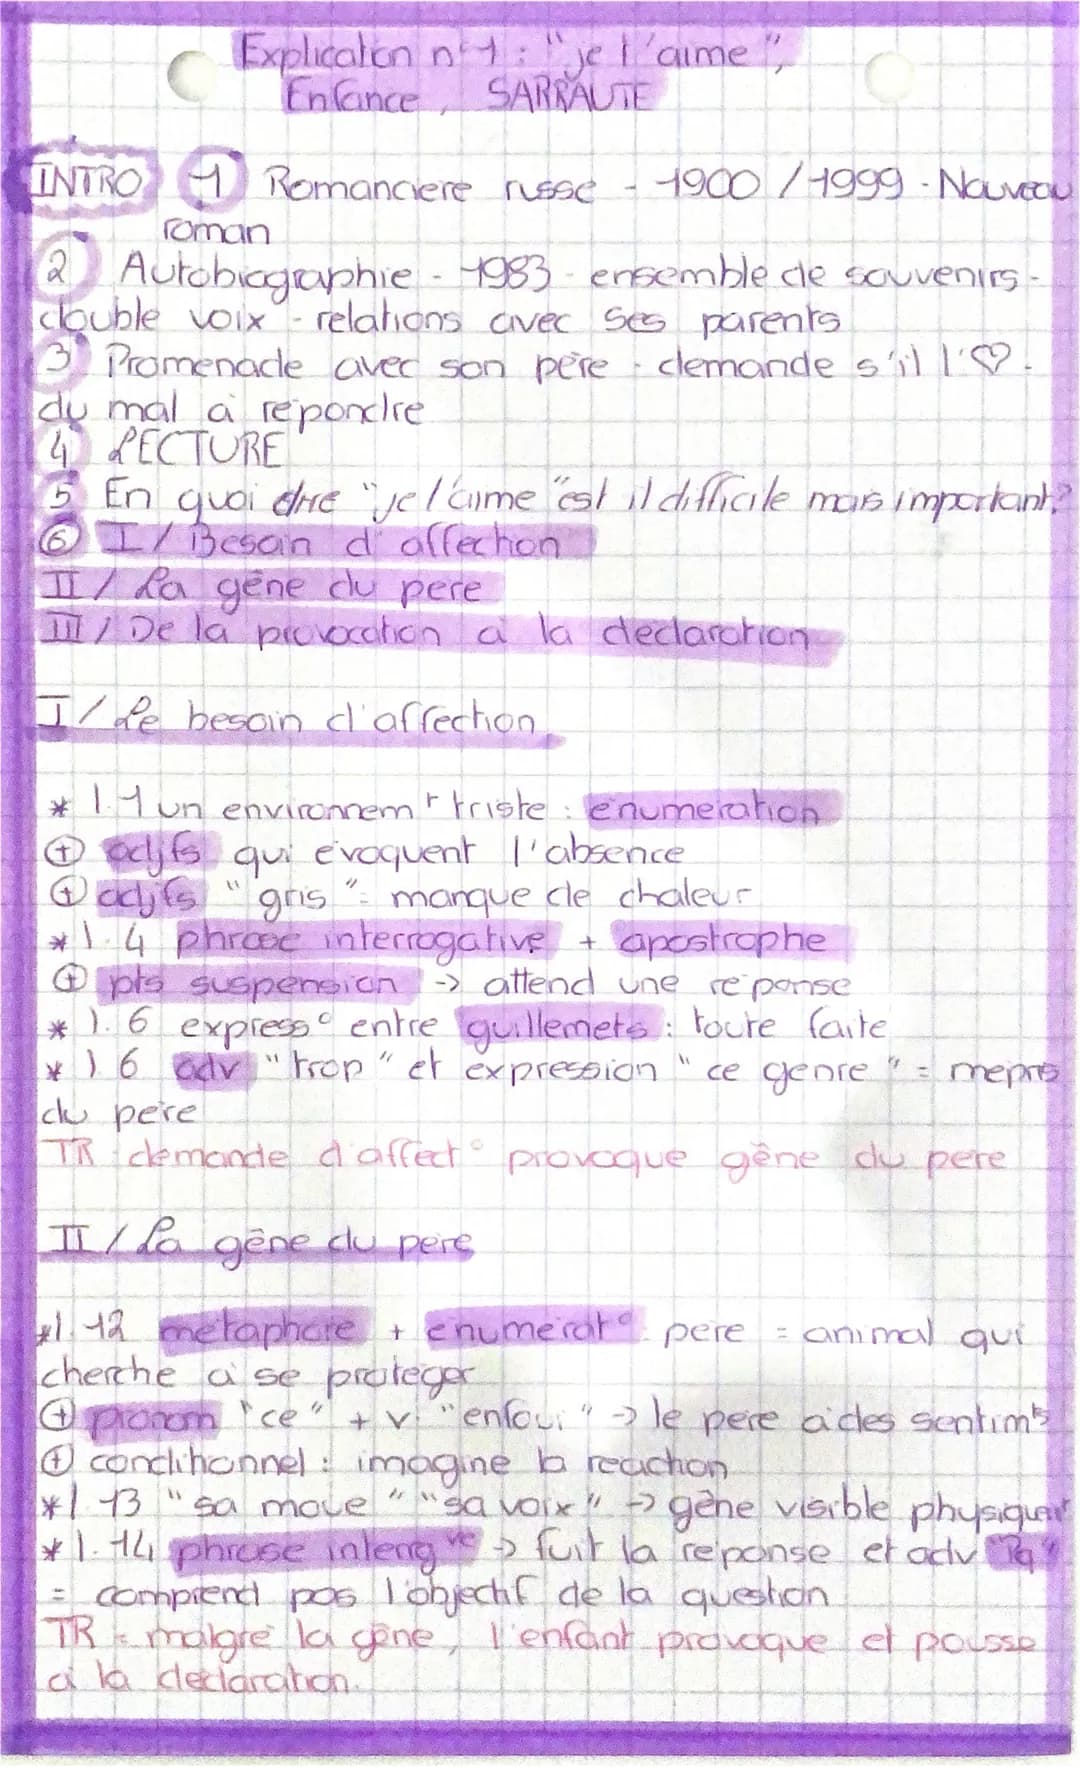 Explication n°1 : "je t'aime",
Enfance, SARRAUTE
INTRO 1 Romanciere russe - 1900 / 1999 - Nouveau
roman
2 Autobiographie - 1983 - ensemble de souvenirs -
double voix - relations avec ses parents
3 Promenade avec son père - demande s'il l'♡.
du mal à répondre
4 LECTURE
5 En quoi dire "je t'aime" est il difficile mais important?
6 I / Besoin d'affection
II / La gêne du pere
III / De la provocation à la declaration
I / Le besoin d'affection
* l.1 un environnemt triste : énumeration
⊕ adjfs qui évoquent l'absence
⊕ adjfs "gris" = manque de chaleur
* l.4 phrase interrogative + apostrophe
⊕ pts suspension -> attend une réponse
* l.6 express° entre guillemets : toute faite
* l.6 adv "trop" et expression "ce genre" = mepris
du père
TR : demande d'affect° provoque gêne du pere
II / La gêne du pere
* l.12 métaphore + énumérat° : pere = animal qui
cherche à se proteger
⊕ pronom "ce" + v. "enfoui" -> le pere a des sentimts
⊕ conditionnel : imagine la reaction
* l.13 "sa moue" "sa voix" -> gêne visible physiquemt
* l.14 phrase interrogve -> fuit la réponse et adv "Pq"
= comprend pas l'objectif de la question
TR : malgré la gêne, l'enfant provoque et pousse
à la declaration.